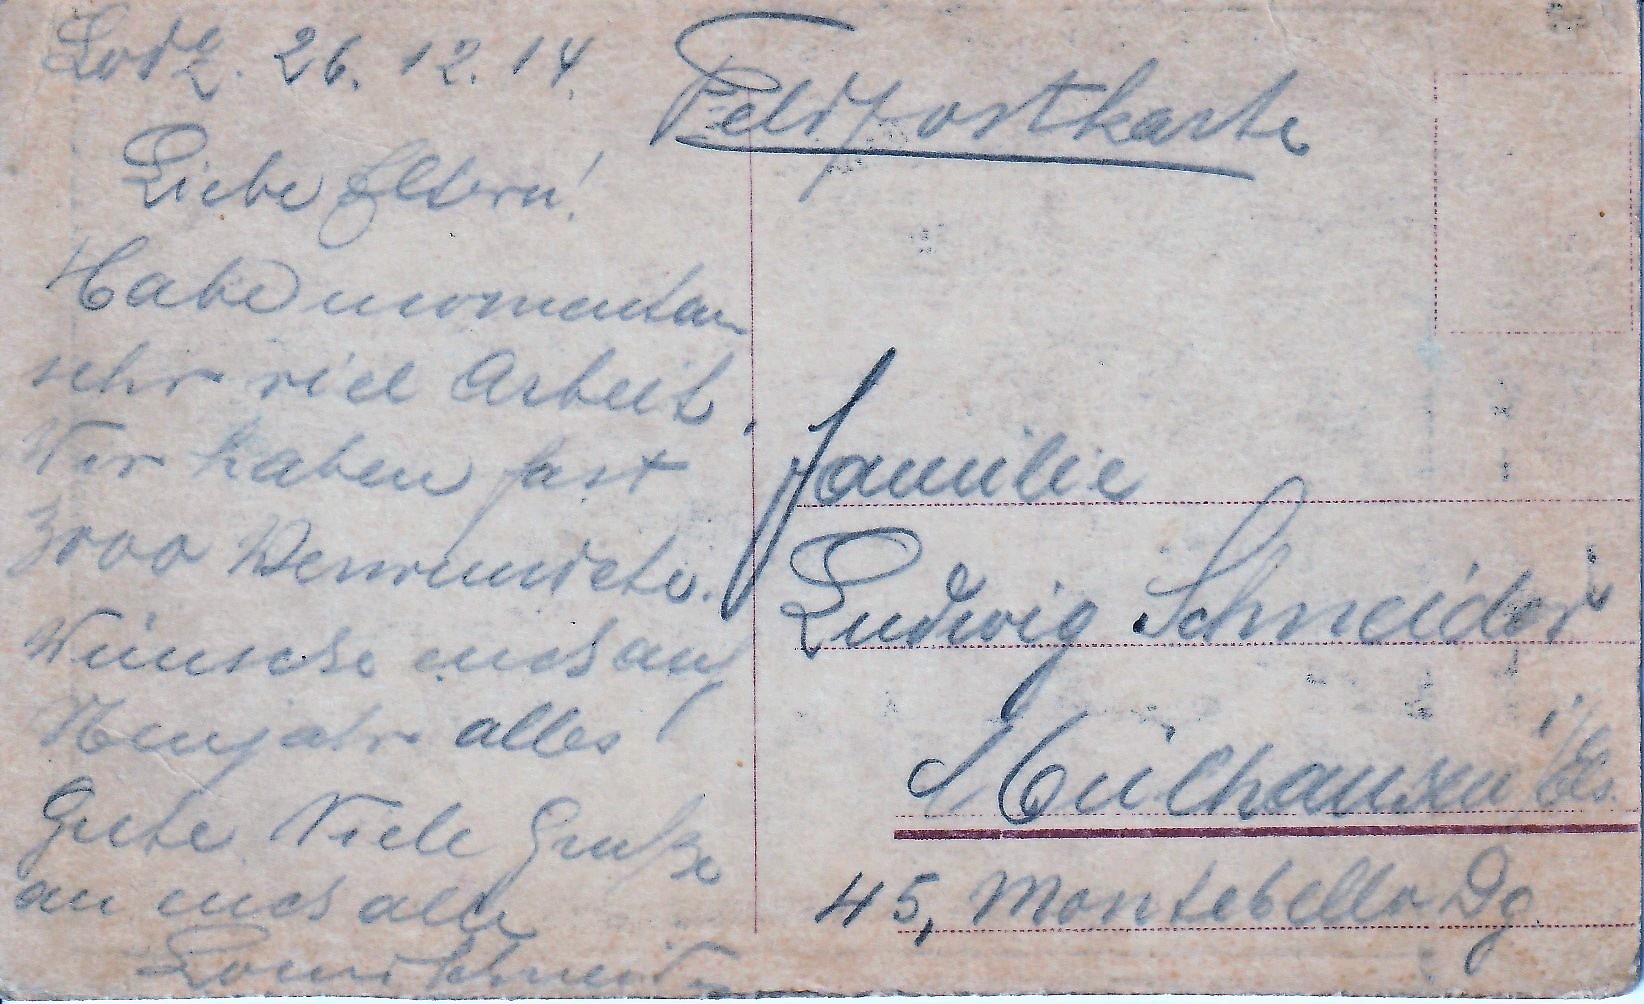 Lodz. 26. 12. 14.
Feldpostkarte
Liebe Eltern!
Habe momentan
sehr viel Arbeit.
Wir haben fast
3000 Verwundete.
Wünsche euch auf
Neujahr alles
Gute. Viele Grüße
an euch alle
Louis Schneider
Familie
Ludwig Schneider
Mülhausen i/Els.
45, Montebello Dg.